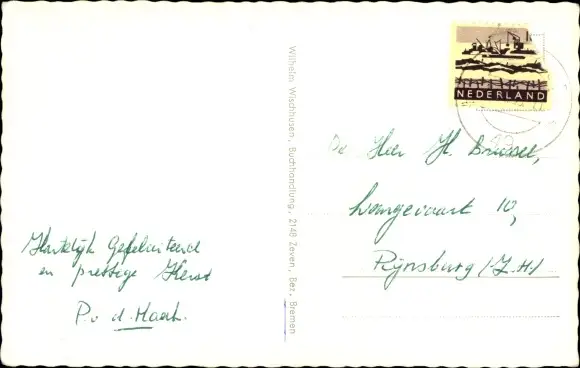 NEDERLAND
De Heer H. Brussee,
Langevaart 10,
Rijnsburg (Z.H.)
Hartelijk Gefeliciteerd
en prettige Kerst
P. v. d. Maark.
Wilhelm Wischhusen, Buchhandlung, 2148 Zeven, Bez. Bremen